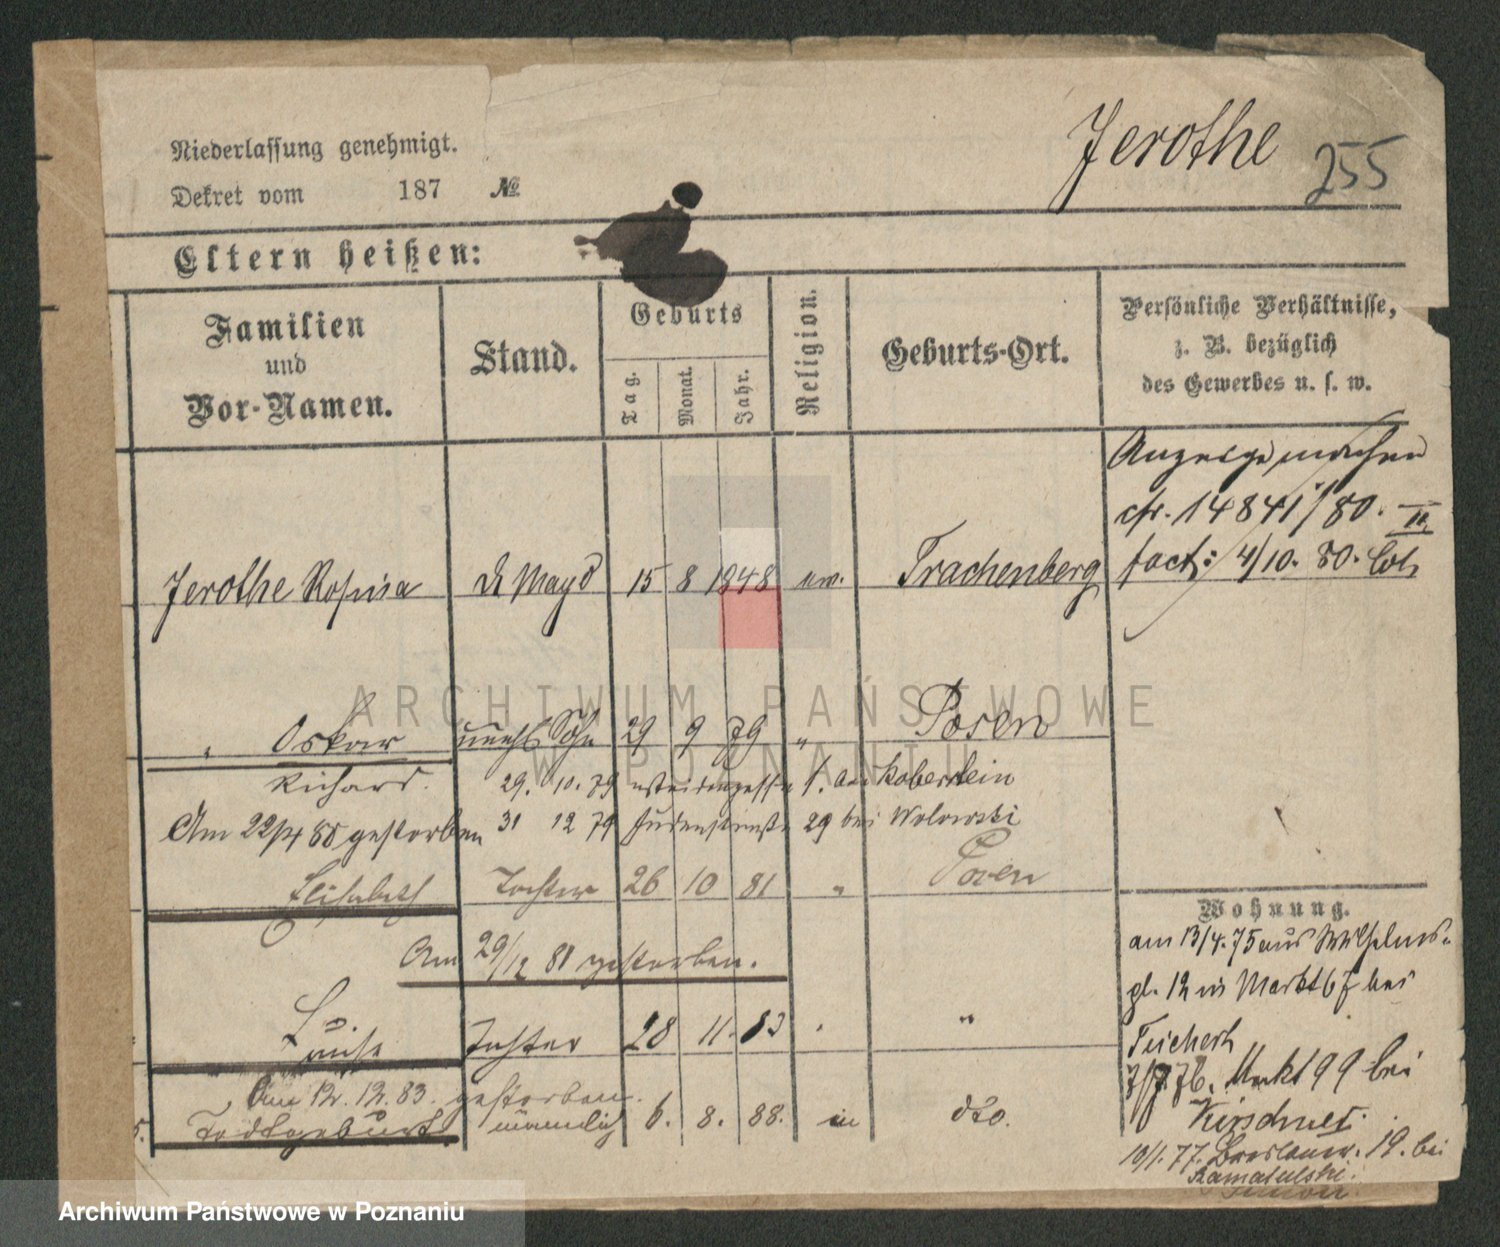 Jerothe 255
Niederlassung genehmigt.
Dekret vom 187 №
Eltern heißen:
Familien
und
Vor-Namen.
Stand.
Geburts
Tag.
Monat.
Jahr.
Religion.
Geburts-Ort.
Persönliche Verhältnisse,
z. B. bezüglich
des Gewerbes u. s. w.
Anzeige machen
cfr. 14841/80. II
fact: 4/10. 80.
Jerothe Rosina d Magd 15 8 1848 ev. Trachenberg
" Oskar unehl Sohn 29 9 79 " Posen
Richard. 29. 10. 79 1. bei Koberstein
Am 22/4 80 gestorben 31 12 79 Judenstraße 29 bei Wolowski
Elisabeth Tochter 26 10 81 " Posen
Am 29/12 81 gestorben.
Luise Tochter 28 11. 83 "
Am 12. 12. 83. gestorben.
Todtgeburt männlich 6. 8. 88. dto.
Wohnung.
am 13/4. 75 aus Wilhelms-
pl. 12 in Markt 67 bei
Teichert
76. Markt 99 bei
Kirschner.
10/1. 77. Breslauer. 19. bei
ARCHIWUM PAŃSTWOWE
W POZNANIU
Archiwum Państwowe w Poznaniu